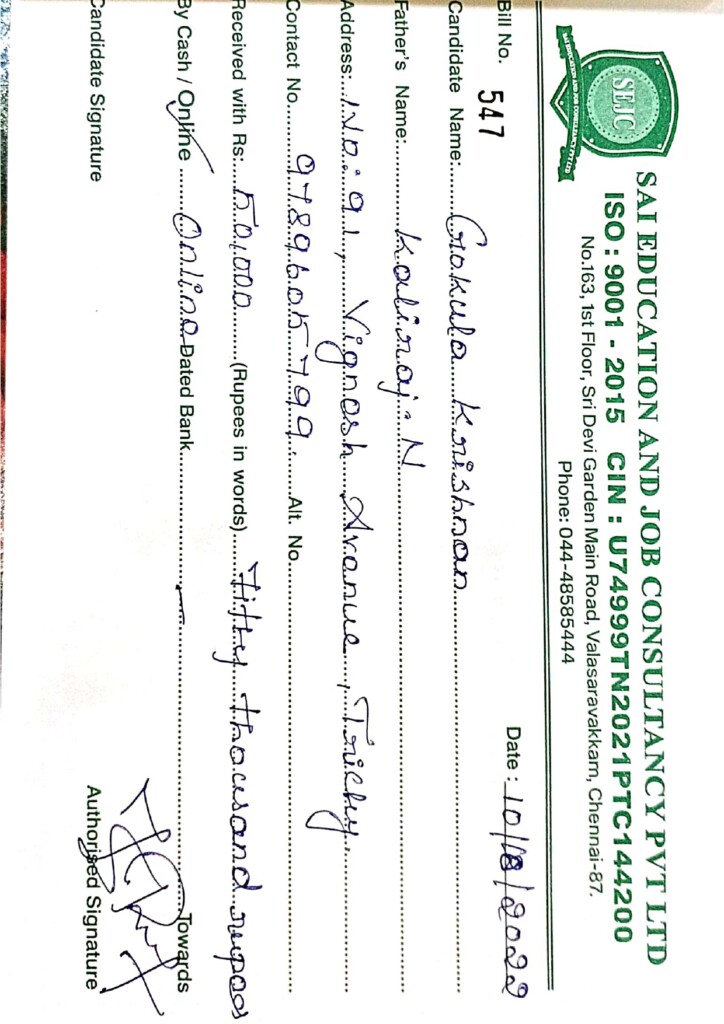 SEJC
SAI EDUCATION AND JOB CONSULTANCY PVT LTD
SAI EDUCATION AND JOB CONSULTANCY PVT LTD
ISO : 9001 - 2015 CIN : U74999TN2021PTC144200
No.163, 1st Floor, Sri Devi Garden Main Road, Valasaravakkam, Chennai-87.
Phone: 044-48585444
Bill No. 547 Date : 10/18/2022
Candidate Name: Gokula Krishnan
Father's Name: Kaliraj. N
Address: No: 91, Vignesh Avenue, Trichy.
Contact No. 9789605799. Alt. No.
Received with Rs: 50,000 (Rupees in words) Fifty thousand rupees
By Cash / Online Online Dated Bank - Towards
Candidate Signature Authorised Signature